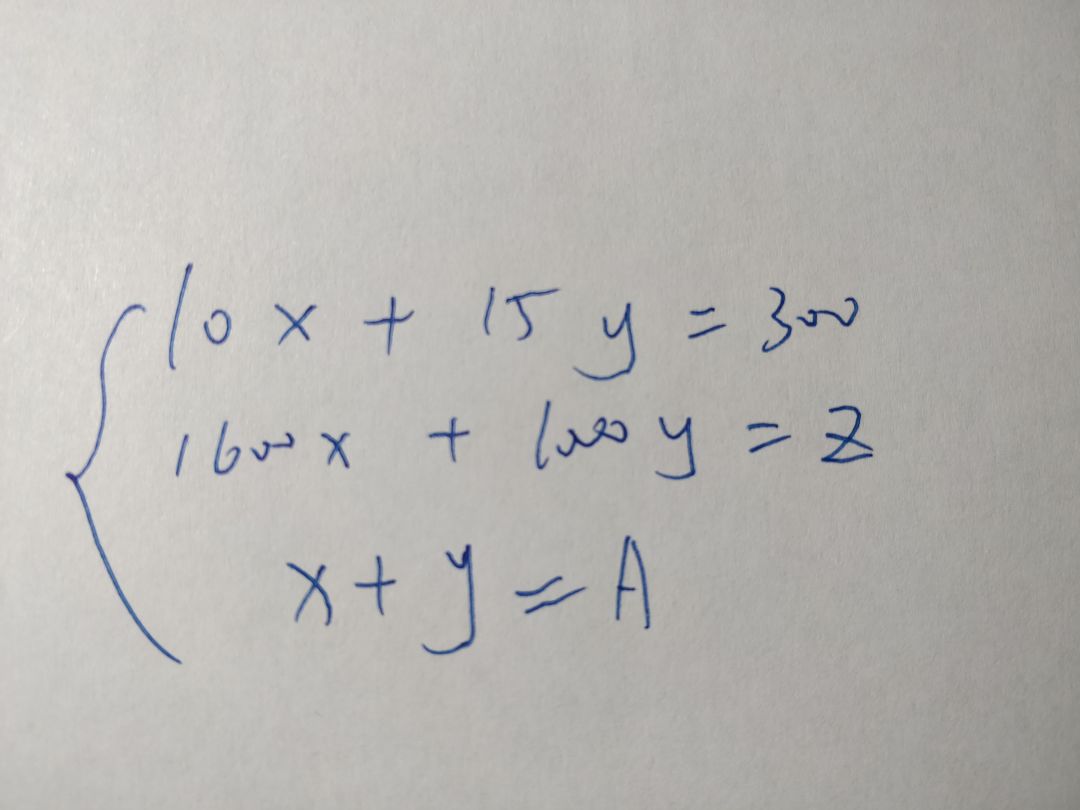 10x + 15y = 300
1600x + 1000y = Z
x + y = A